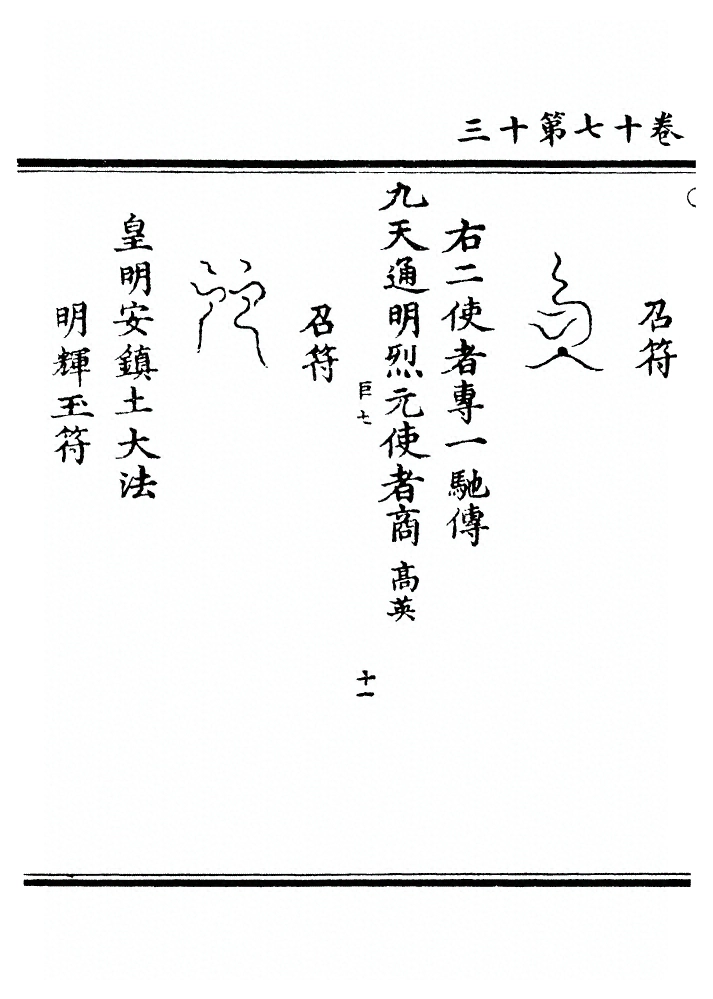 卷十七第十三
召符
右二使者專一馳傳
九天通明烈元使者商高英
巨七
十一
召符
皇明安鎮土大法
明輝玉符